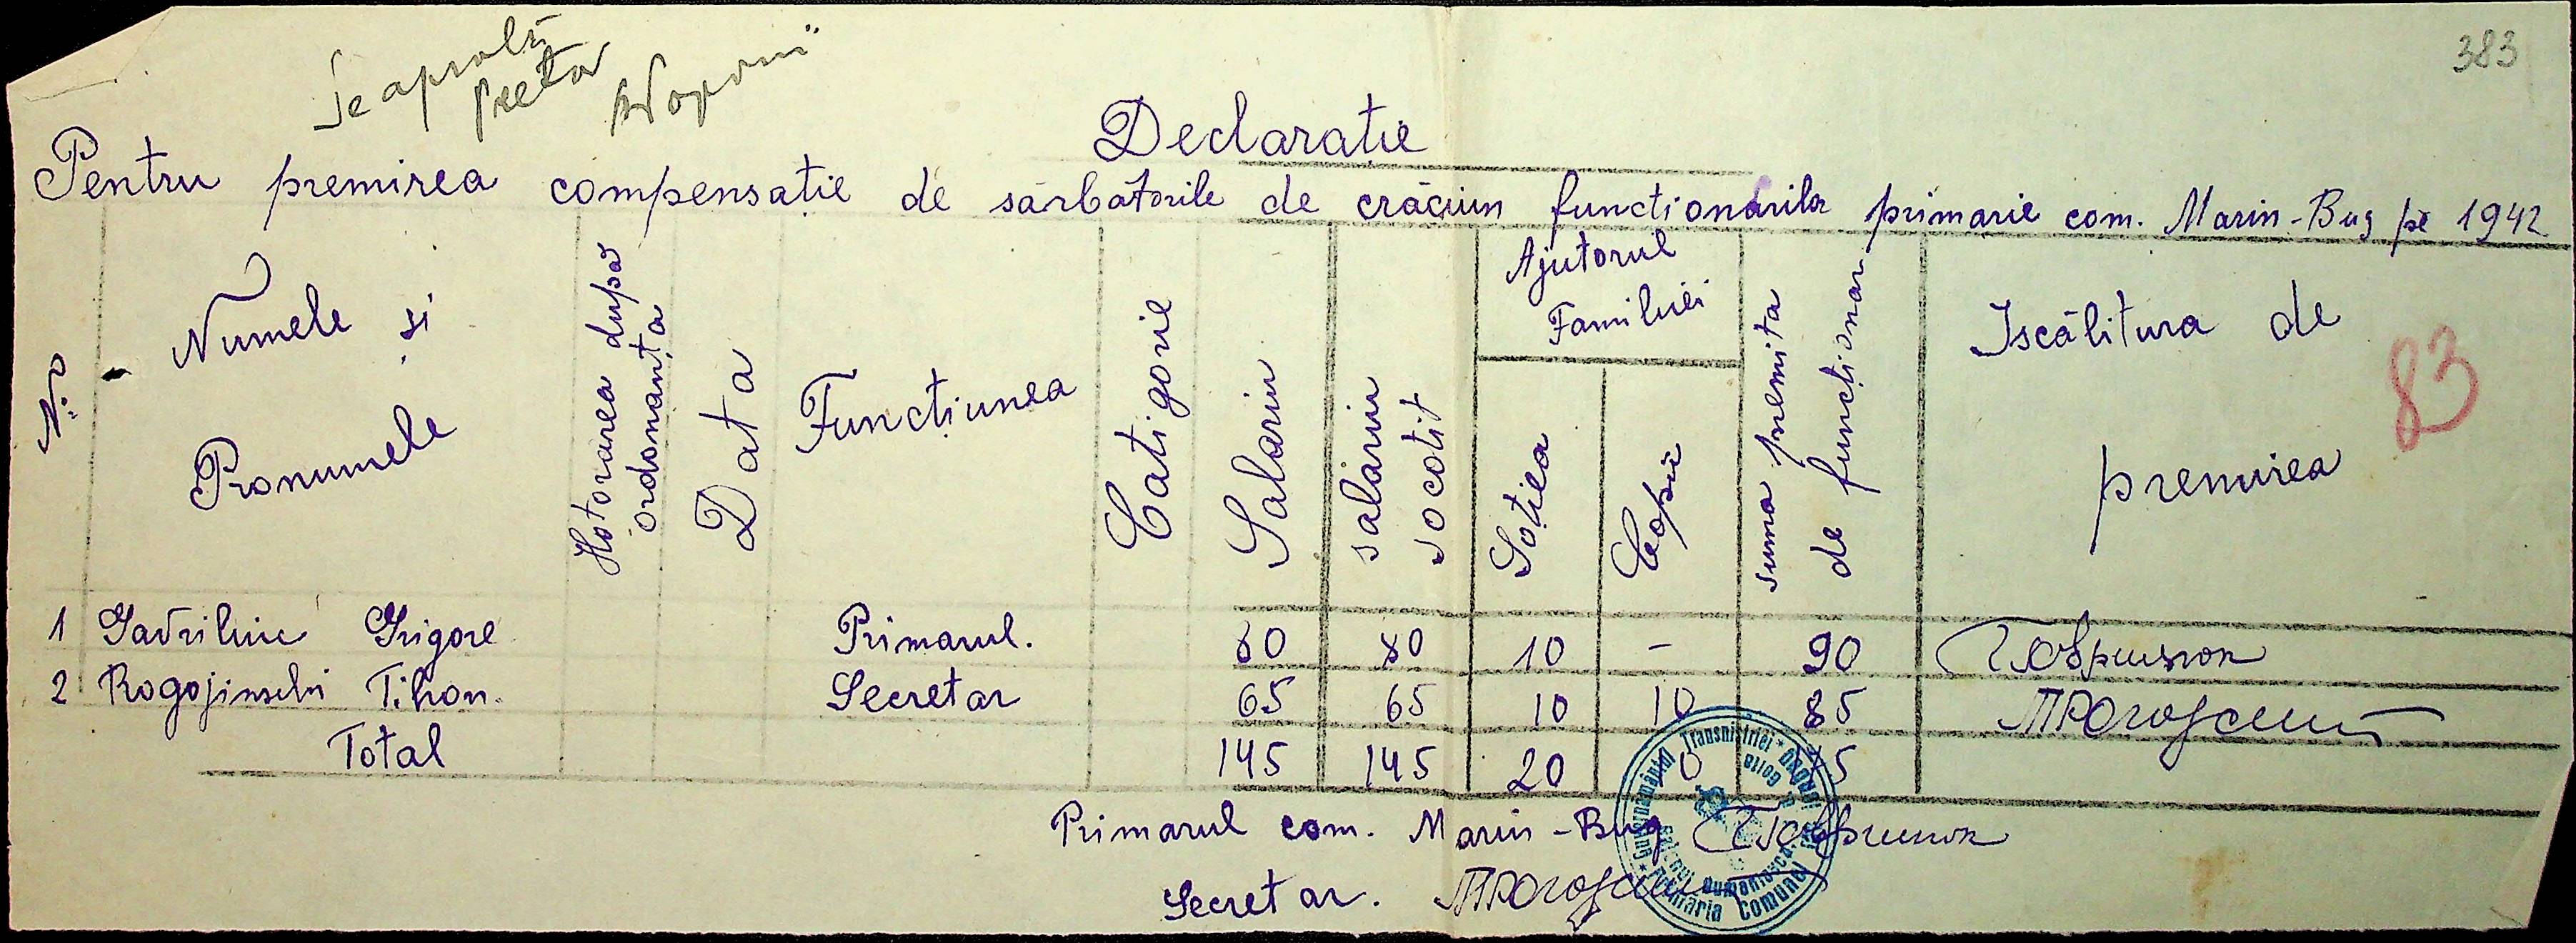 383
Se aprobă
Declarație
Pentru premirea compensație de sărbătorile de crăciun funcționărilor primarie com. Marin-Bug pe 1942
No
Numele și
Pronumele
Hotorârea după
ordonanța
Data
Funcțiunea
Catigorie
Salariu
salariu
socotit
Ajutorul
Familiei
Soțiea
Copii
suma premita
de funcționar
Iscălitura de
premirea
83
1 Gavriliuc Grigore Primarul. 80 80 10 - 90
2 Rogojinschi Tihon. Secretar 65 65 10 10 85
Total 145 145 20
Primarul com. Marin-Bug
Secretar.
Guvernământul Transnistriei
Primăria Comunei